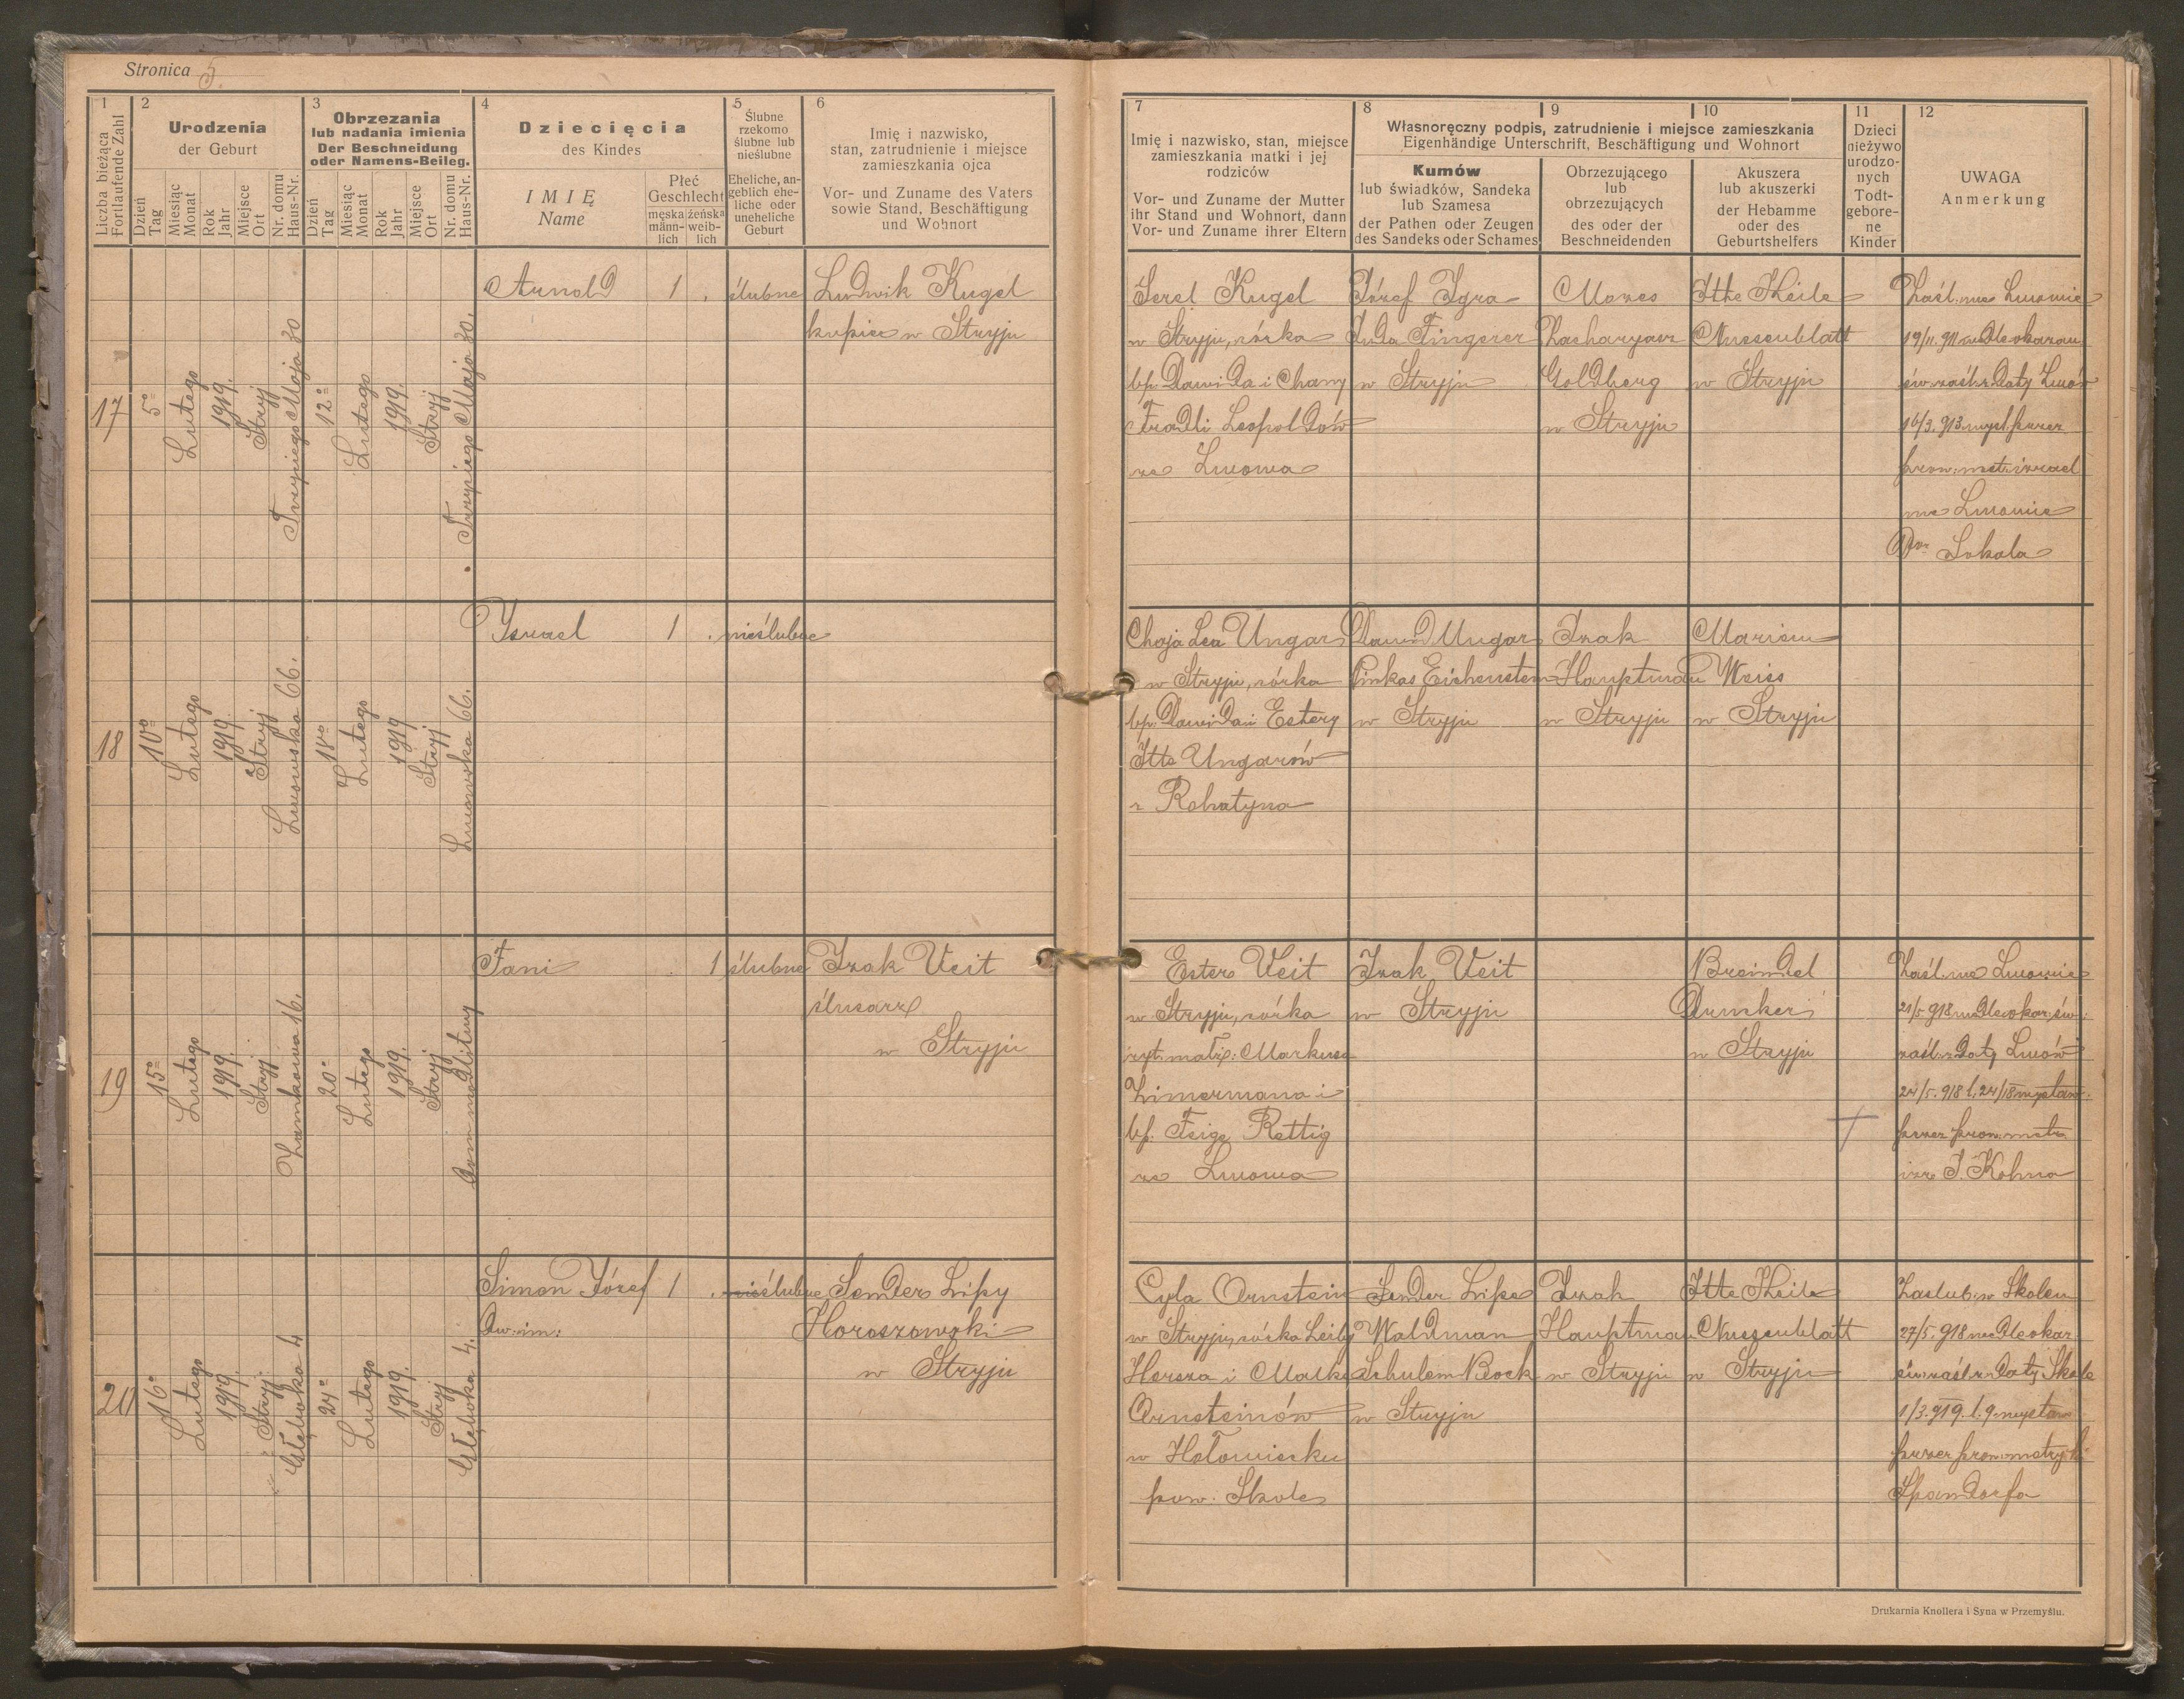 Stronica 5.
1
Liczba bieżąca
Fortlaufende Zahl
2
Urodzenia
der Geburt
Dzień
Tag
Miesiąc
Monat
Rok
Jahr
Miejsce
Ort
Nr. domu
Haus-Nr.
3
Obrzezania
lub nadania imienia
Der Beschneidung
oder Namens-Beileg.
Dzień
Tag
Miesiąc
Monat
Rok
Jahr
Miejsce
Ort
Nr. domu
Haus-Nr.
4
Dziecięcia
des Kindes
IMIĘ
Name
Płeć
Geschlecht
męska
männ-
lich
żeńska
weib-
lich
5
Ślubne
rzekomo
ślubne lub
nieślubne
Eheliche, an-
geblich ehe-
liche oder
uneheliche
Geburt
6
Imię i nazwisko,
stan, zatrudnienie i miejsce
zamieszkania ojca
Vor- und Zuname des Vaters
sowie Stand, Beschäftigung
und Wohnort
7
Imię i nazwisko, stan, miejsce
zamieszkania matki i jej
rodziców
Vor- und Zuname der Mutter
ihr Stand und Wohnort, dann
Vor- und Zuname ihrer Eltern
8 9 10
Własnoręczny podpis, zatrudnienie i miejsce zamieszkania
Eigenhändige Unterschrift, Beschäftigung und Wohnort
Kumów
lub świadków, Sandeka
lub Szamesa
der Pathen oder Zeugen
des Sandeks oder Schames
Obrzezującego
lub
obrzezujących
des oder der
Beschneidenden
Akuszera
lub akuszerki
der Hebamme
oder des
Geburtshelfers
11
Dzieci
nieżywo
urodzo-
nych
Todt-
gebore-
ne
Kinder
12
UWAGA
Anmerkung
17
5º
Lutego
1919.
Stryj
Trzeciego Maja 30
12º
Lutego
1919.
Stryj
Maja 30.
Arnold
1 .
ślubne
Ludwik Kugel
kupiec w Stryju
Serel Kugel
w Stryju, córka
bp. Dawida i Chany
Fradli Leopoldów
ze Lwowa
Józef Igra
Juda Fingerer
w Stryju
Moses
Zacharyasz
Goldberg
w Stryju
Itte Theile
Nussenblatt
w Stryju
Zaśl. we Lwowie
św. zaśl. z daty Lwów
16/3. 913 wyst. przez
prow. metr. izrael
we Lwowie
Dra Sokala
18
10º
Lutego
1919.
Stryj
Lwowska 66.
18º
Lutego
1919
Stryj
Lwowska 66.
Israel
1 .
nieślubne
Chaja Lea Ungar
w Stryju, córka
bp. Dawida i Estery
Itte Ungarów
z Rohatyna
Dawid Ungar
Pinkas Eichenstein
w Stryju
Izak
Hauptman
w Stryju
Mariem
Weiss
w Stryju
19
15º
Lutego
1919.
Stryj
Zamkowa 16.
20º
Lutego
1919.
Stryj
Dom modlitwy
Fani
. 1
ślubne
Izak Veit
ślusarz
w Stryju
Ester Veit
w Stryju, córka
ryt. małż. Markusa
Zimermana i
bp. Feige Rettig
ze Lwowa
Izak Veit
w Stryju
Breindel
w Stryju
Zaśl. we Lwowie
zaśl. z daty Lwów
24/5. 918 l. 24/18 wystaw.
przez prow. metr.
izr. J. Kohna
20
16º
Lutego
1919.
Stryj
Głęboka 4
24º
Lutego
1919.
Stryj
Głęboka 4.
Simon Józef
Dw. im:
1 .
nieślubne
Sender Lipy
Horoszowski
w Stryju
Cyla Ornstein
w Stryju, córka Leiby
Hersza i Malke
Ornsteinów
w Hołowiecku
pow. Skole
Sender Lipe
Waldman
Schulem Bock
w Stryju
Izak
Hauptman
w Stryju
Itte Theile
Nussenblatt
w Stryju
Zaślub. w Skolem
św. zaśl. z daty Skole
1/3. 919. l. 9. wystaw
przez prow. metryk
Spandorfa
Drukarnia Knollera i Syna w Przemyślu.